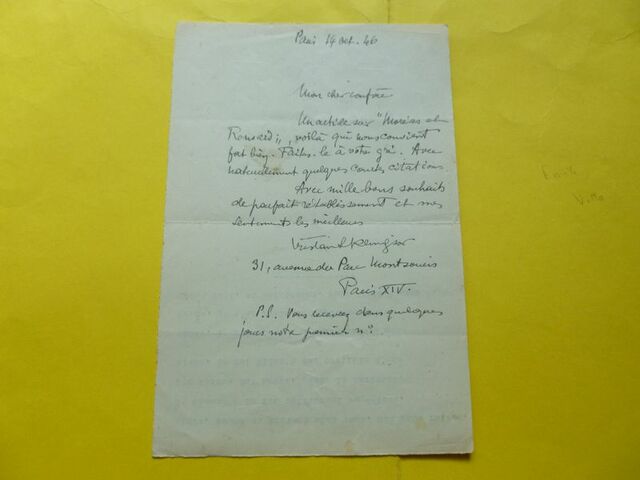 Paris 14 oct. 46
Mon cher confrère
Un article sur "Moréas et
Ronsard", voilà qui nous convient
fort bien. Faites-le à votre gré. Avec
naturellement quelques courtes citations.
Avec mille bons souhaits
de parfait rétablissement et mes
sentiments les meilleurs
Tristan Klingsor
31, avenue du Parc Montsouris
Paris XIV.
P.S. Vous recevrez dans quelques
jours notre premier n°.